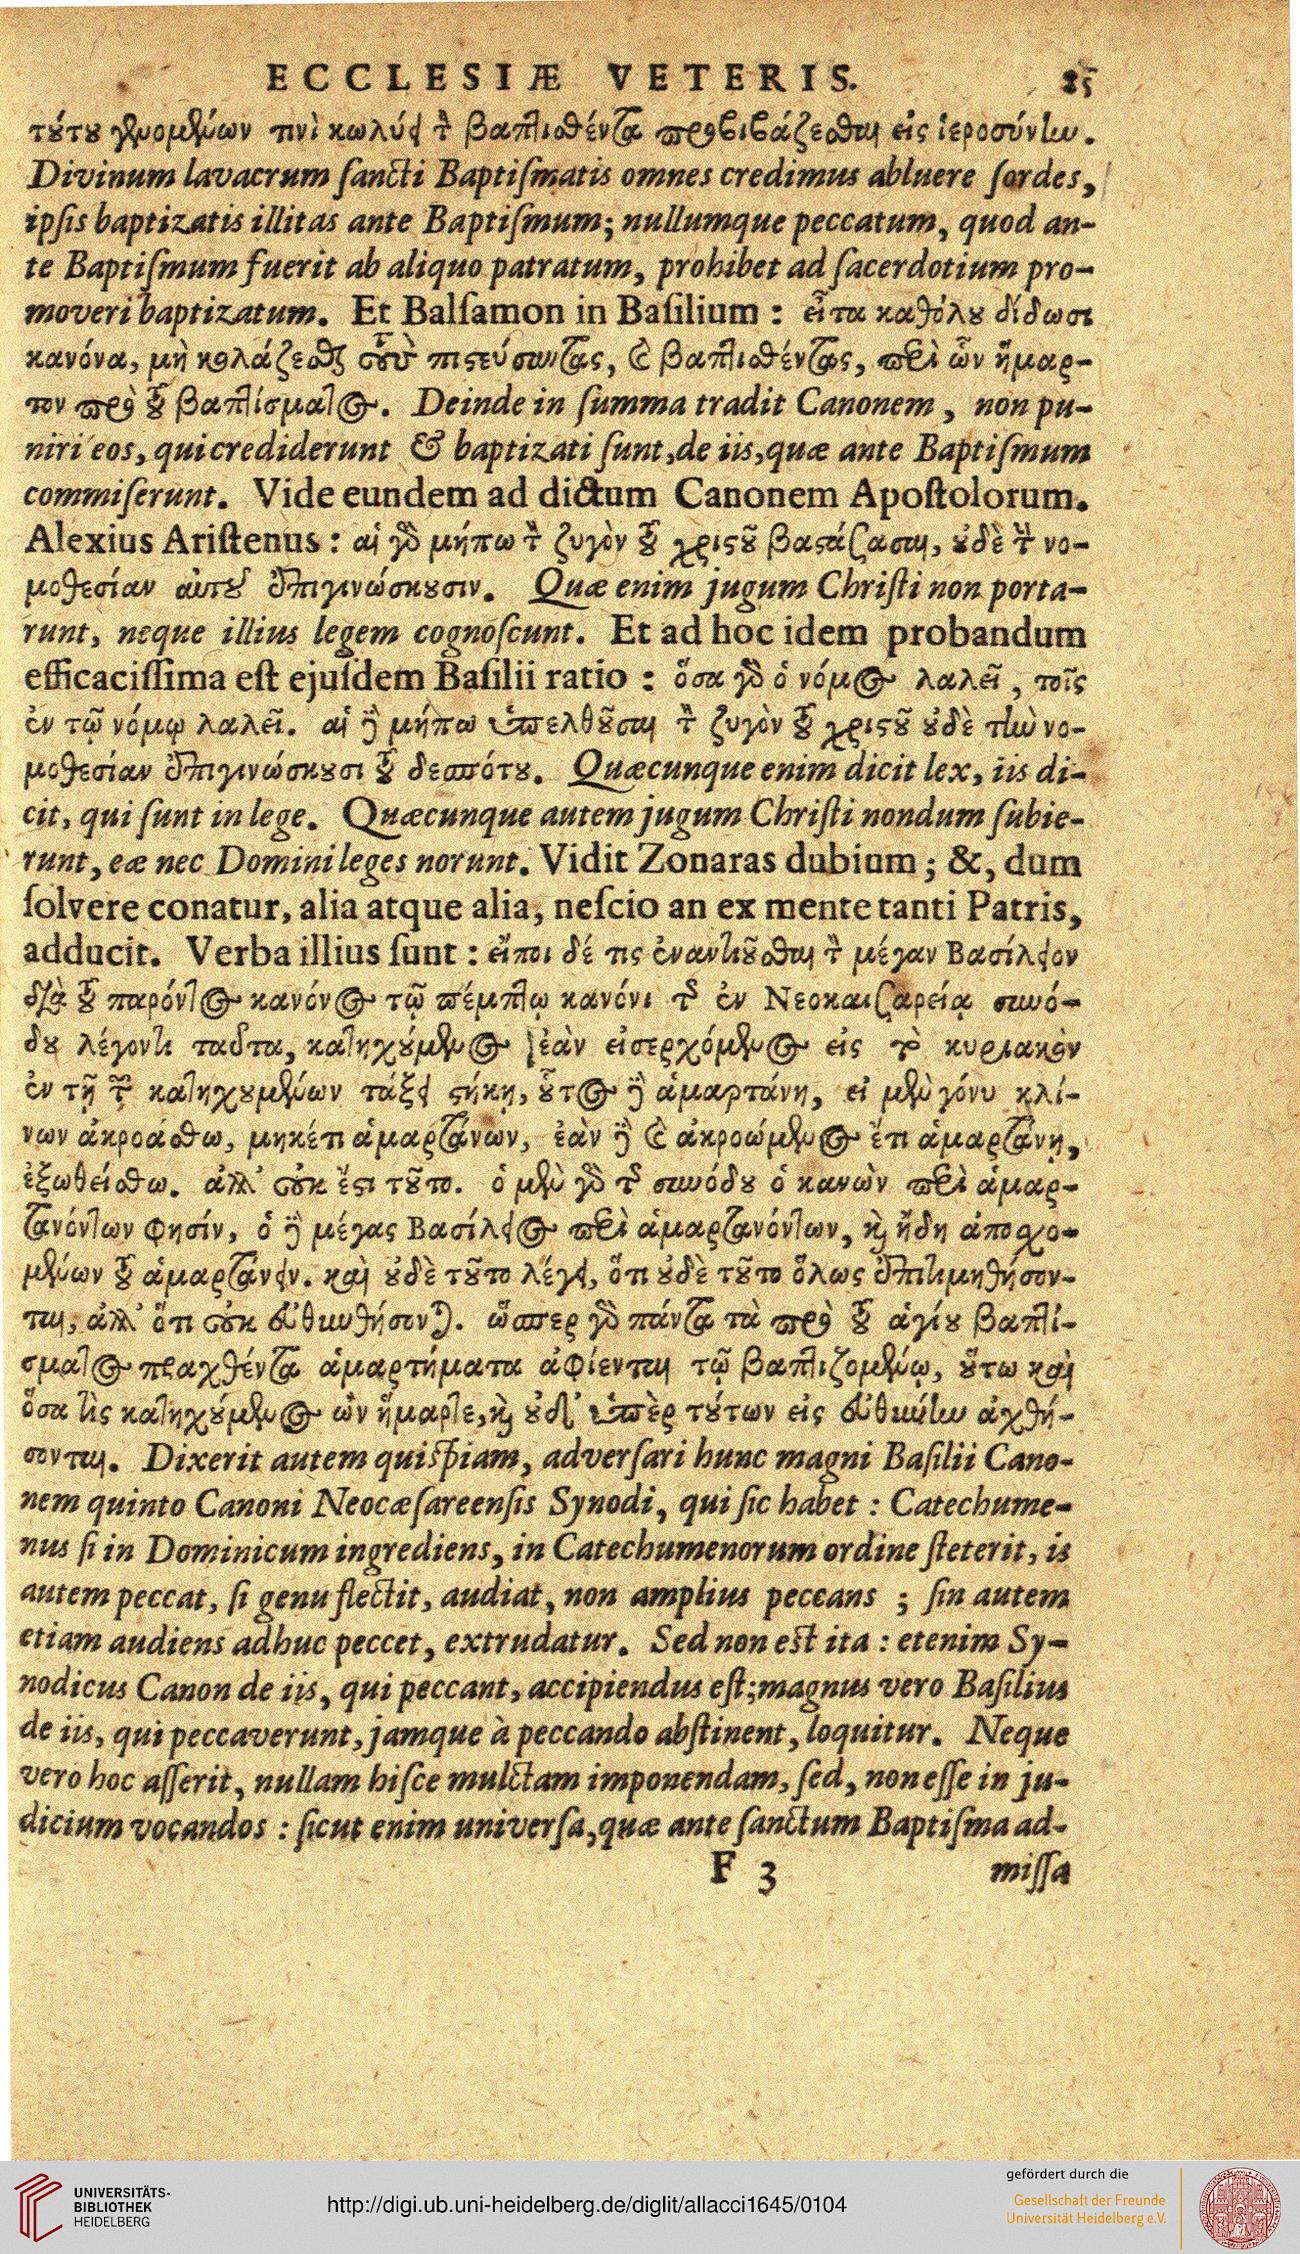 ECCLESIÆ VETERIS. 85
τούτου γενομένων τινὶ κωλύει τὸν βαπτισθέντα προβιβάζεσθαι εἰς ἱεροσύνην.
Divinum lavacrum ſancti Baptiſmatis omnes credimus abluere ſordes,
ipſis baptizatis illitas ante Baptiſmum; nullumque peccatum, quod an-
te Baptiſmum fuerit ab aliquo patratum, prohibet ad ſacerdotium pro-
moveri baptizatum. Et Balſamon in Baſilium : εἶτα καθόλου δίδωσι
κανόνα, μὴ κολάζεσθαι τοὺς πιστεύσαντας, καὶ βαπτισθέντας, περὶ ὧν ἥμαρ-
τον πρὸ τοῦ βαπτίσματος. Deinde in ſumma tradit Canonem, non pu-
niri eos, qui crediderunt & baptizati ſunt, de iis, quæ ante Baptiſmum
commiſerunt. Vide eundem ad dictum Canonem Apoſtolorum.
Alexius Ariſtenus : αἱ γὰρ μήπω τὸν ζυγὸν τοῦ χριστοῦ βαστάζασαι, οὐδὲ τὴν νο-
μοθεσίαν αὐτοῦ ἐπιγινώσκουσιν. Quæ enim jugum Chriſti non porta-
runt, neque illius legem cognoſcunt. Et ad hoc idem probandum
efficaciſſima eſt ejuſdem Baſilii ratio : ὅσα γὰρ ὁ νόμος λαλεῖ, τοῖς
ἐν τῷ νόμῳ λαλεῖ. αἱ δὲ μήπω ὑπελθοῦσαι τὸν ζυγὸν τοῦ χριστοῦ οὐδὲ τὴν νο-
μοθεσίαν ἐπιγινώσκουσι τοῦ δεσπότου. Quæcunque enim dicit lex, iis di-
cit, qui ſunt in lege. Quæcunque autem jugum Chriſti nondum ſubie-
runt, eæ nec Domini leges norunt. Vidit Zonaras dubium ; &, dum
ſolvere conatur, alia atque alia, neſcio an ex mente tanti Patris,
adducit. Verba illius ſunt : εἴποι δέ τις ἐναντιοῦσθαι τὸν μέγαν Βασίλειον
διὰ τοῦ παρόντος κανόνος τῷ πέμπτῳ κανόνι τῆς ἐν Νεοκαισαρείᾳ συνό-
δου λέγοντι ταῦτα, κατηχούμενος ἐὰν εἰσερχόμενος εἰς τὸ κυριακὸν
ἐν τῇ τῶν κατηχουμένων τάξει στήκῃ, οὗτος δὲ ἁμαρτάνῃ, εἰ μὲν γόνυ κλί-
νων ἀκροάσθω, μηκέτι ἁμαρτάνων, ἐὰν δὲ καὶ ἀκροώμενος ἔτι ἁμαρτάνῃ,
ἐξωθείσθω. ἀλλ' οὐκ ἔστι τοῦτο. ὁ μὲν γὰρ τῆς συνόδου ὁ κανὼν περὶ ἁμαρ-
τανόντων φησίν, ὁ δὲ μέγας Βασίλειος περὶ ἁμαρτανόντων, καὶ ἤδη ἀποσχο-
μένων τοῦ ἁμαρτάνειν. καὶ οὐδὲ τοῦτο λέγει, ὅτι οὐδὲ τοῦτο ὅλως ἐπιτιμηθήσον-
ται, ἀλλ' ὅτι οὐκ εὐθυνθήσονται. ὥσπερ γὰρ πάντα τὰ πρὸ τοῦ ἁγίου βαπτί-
σματος πραχθέντα ἁμαρτήματα ἀφίενται τῷ βαπτιζομένῳ, οὕτω καὶ
ὅσα τὶς κατηχούμενος ὢν ἥμαρτε, καὶ οὐδ' ὑπὲρ τούτων εἰς εὐθύνην ἀχθή-
σονται. Dixerit autem quiſpiam, adverſari hunc magni Baſilii Cano-
nem quinto Canoni Neocæſareenſis Synodi, qui ſic habet : Catechume-
nus ſi in Dominicum ingrediens, in Catechumenorum ordine ſteterit, is
autem peccat, ſi genu flectit, audiat, non amplius peccans ; ſin autem
etiam audiens adhuc peccet, extrudatur. Sed non eſt ita : etenim Sy-
nodicus Canon de iis, qui peccant, accipiendus eſt; magnus vero Baſilius
de iis, qui peccaverunt, jamque à peccando abſtinent, loquitur. Neque
vero hoc aſſerit, nullam hiſce mulctam imponendam, ſed, non eſſe in ju-
dicium vocandos : ſicut enim univerſa, quæ ante ſanctum Baptiſma ad-
F 3 miſſa
UNIVERSITÄTS-
BIBLIOTHEK
HEIDELBERG
http://digi.ub.uni-heidelberg.de/diglit/allacci1645/0104
gefördert durch die
Gesellschaft der Freunde
Universität Heidelberg e.V.